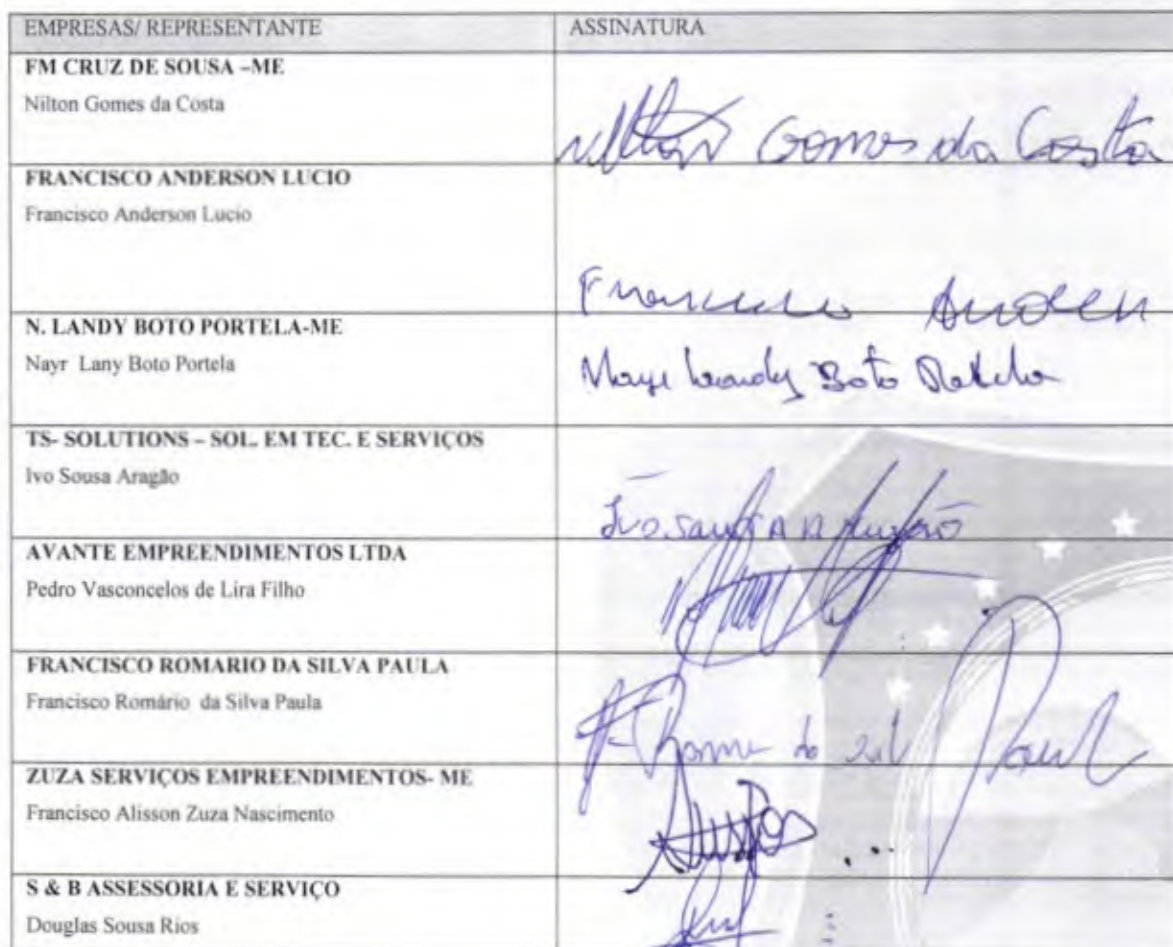 EMPRESAS/ REPRESENTANTE ASSINATURA
FM CRUZ DE SOUSA –ME
Nilton Gomes da Costa
Nilton Gomes da Costa
FRANCISCO ANDERSON LUCIO
Francisco Anderson Lucio
Francisco Anderson
N. LANDY BOTO PORTELA-ME
Nayr Lany Boto Portela
Landy Boto Portela
TS- SOLUTIONS – SOL. EM TEC. E SERVIÇOS
Ivo Sousa Aragão
Ivo
AVANTE EMPREENDIMENTOS LTDA
Pedro Vasconcelos de Lira Filho
FRANCISCO ROMARIO DA SILVA PAULA
Francisco Romário da Silva Paula
ZUZA SERVIÇOS EMPREENDIMENTOS- ME
Francisco Alisson Zuza Nascimento
S & B ASSESSORIA E SERVIÇO
Douglas Sousa Rios